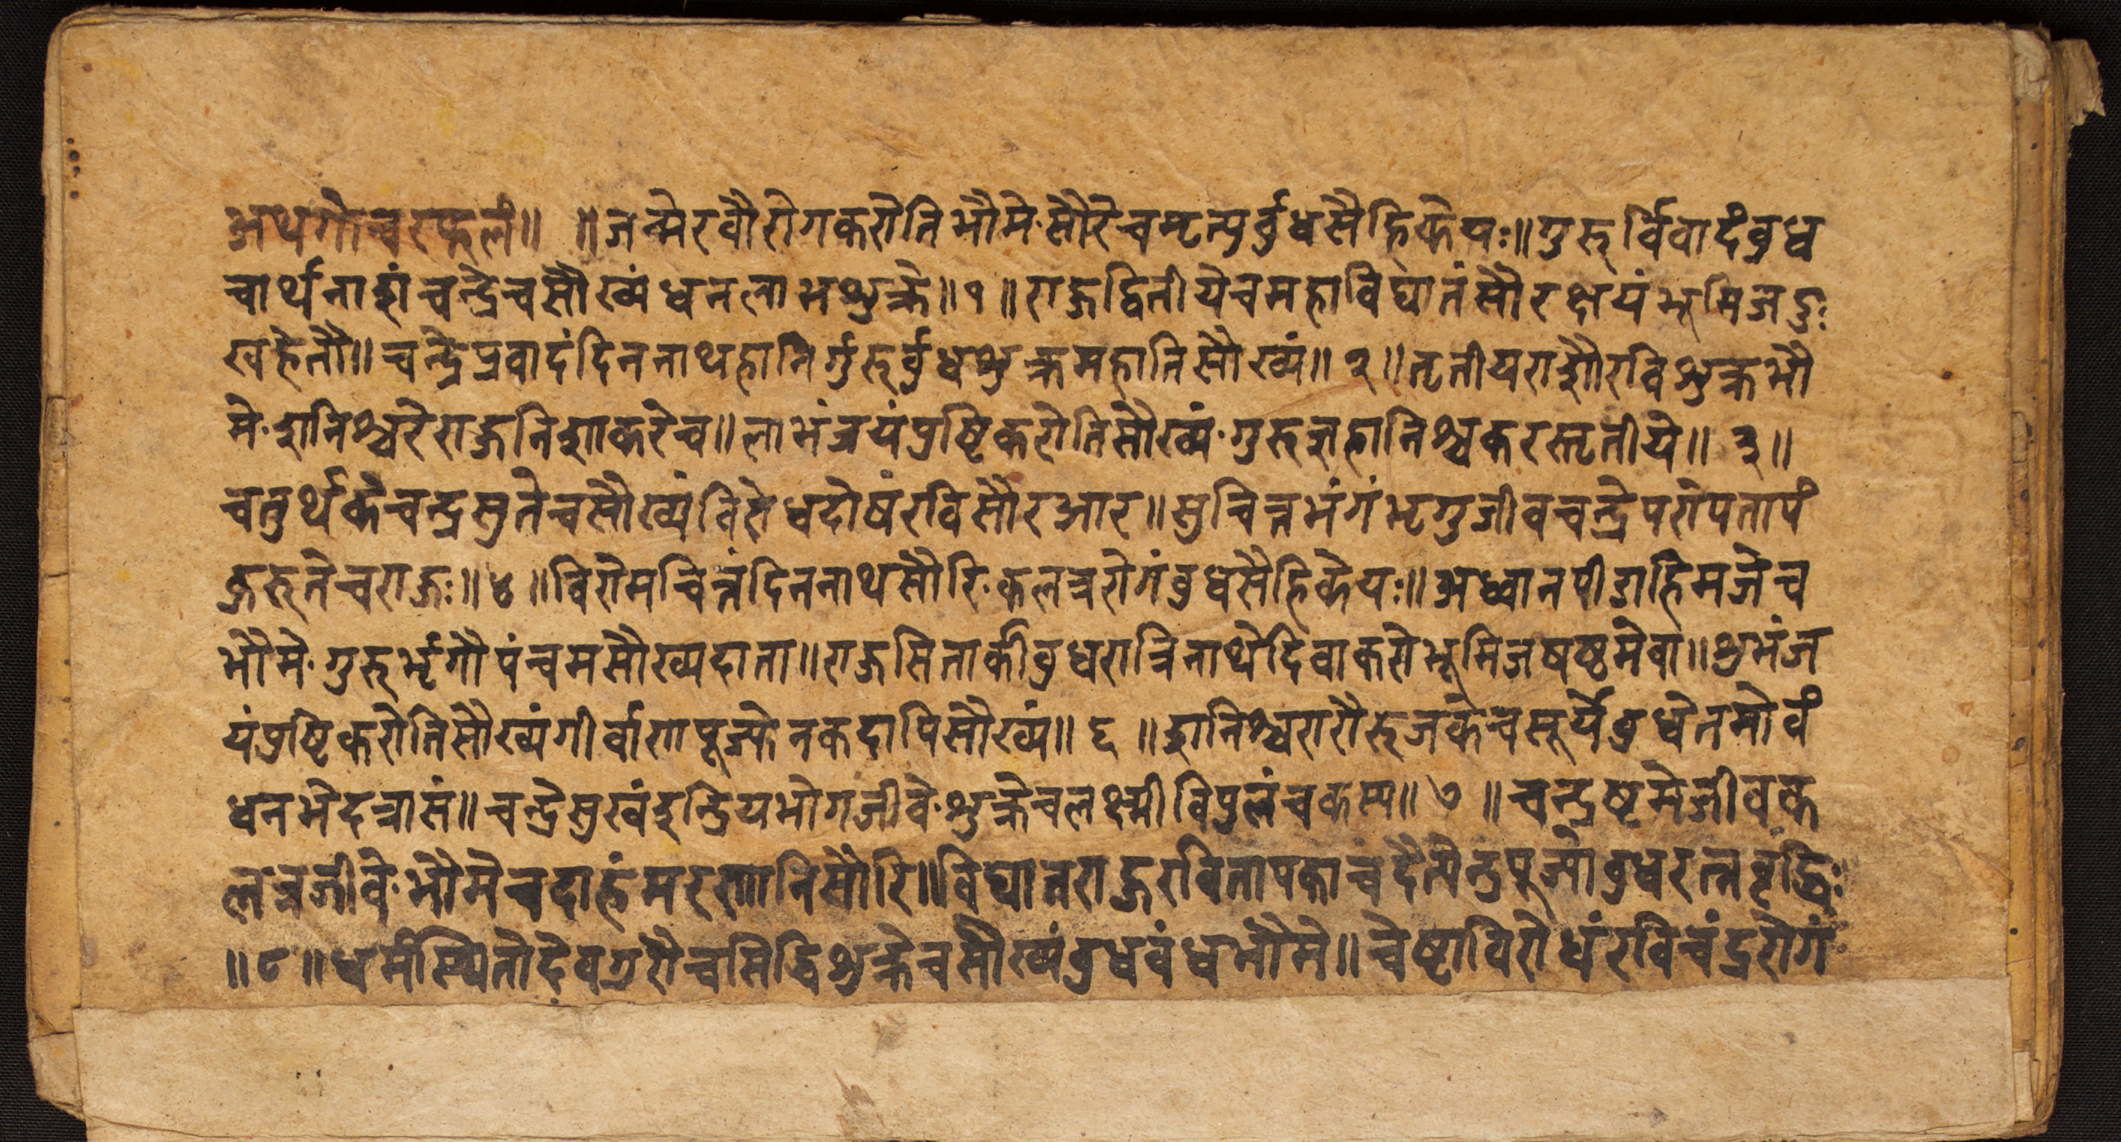 अथगोचरफलं॥ ॥जन्मेरवौरोगकरोतिभौमे·सौरेचमृत्युर्बुधसैंहिकेयः॥गुरुर्विवादंबुध
चार्थनाशंचन्द्रेचसौख्यंधनलाभशुक्रे॥१॥राहुद्वितीयेचमहाविघातंसौरक्षयंभूमिजदुः
खहेतौ॥चन्द्रेप्रवादंदिननाथहानिर्गुरुर्बुधशुक्रमहानिसौख्यं॥२॥तृतीयराशौरविशुक्रभौ
मे·शनिश्चरेराहुनिशाकरेच॥लाभंजयंपुष्टिकरोतिसौख्यं·गुरुज्ञहानिश्चकरस्तृतीये॥३॥
चतुर्थकेचन्द्रसुतेचसौख्यंविरोधदोषंरविसौरआर॥सुचित्तभंगंभृगुजीवचन्द्रेपरोपतापं
कुरुतेचराहुः॥४॥विरोमचित्तंदिननाथसौरि·कलत्ररोगंबुधसैंहिकेयः॥अध्वानपीडाहिमजेच
भौमे·गुरुर्भृगौपंचमसौख्यदाता॥राहुसितार्कीबुधरात्रिनाथेदिवाकरोभूमिजषष्ठमेवा॥शुभंज
यंपुष्टिकरोतिसौख्यंगीर्वाणपूज्येनकदापिसौख्यं॥६॥शनिश्चरारौहुजकेचसूर्येबुधेतमोवं
धनभेदत्रासं॥चन्द्रेसुखंइन्द्रियभोगजीवे·शुक्रेचलक्ष्मीविपुलंचकस्य॥७॥चन्द्रष्टमेजीवक
लत्रजीवे·भौमेचदाहंमरणानिसौरि॥विघातराहुरवितापकाचदैत्येन्दुपूज्यांबुधरत्नवृद्धिः
॥८॥धर्मस्थितोदेवगुरौचसिद्धिशुक्रेचसौख्यंबुधबंधभौमे॥चेष्टाविरोधंरविचंद्ररोगं